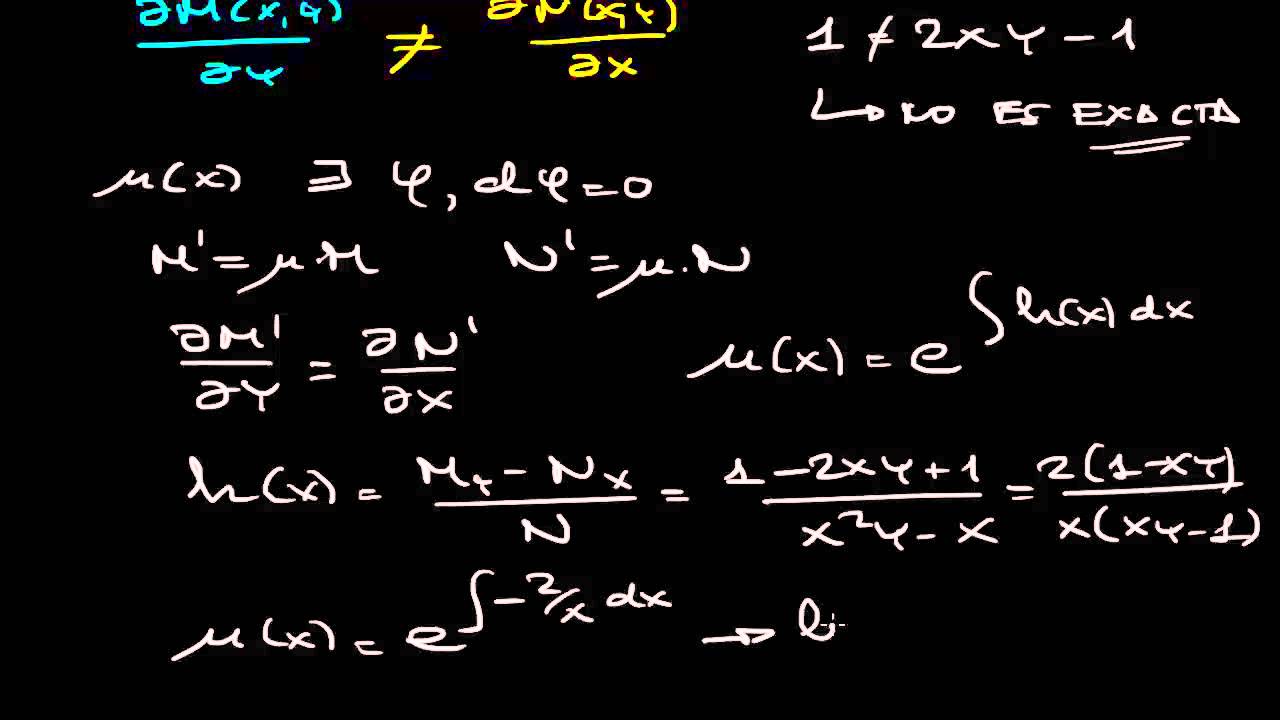 ∂M(x,y)/∂y ≠ ∂N(x,y)/∂x
1 ≠ 2xy - 1
↳ NO ES EXACTA
μ(x) ∃ φ, dφ = 0
M' = μ.M N' = μ.N
∂M'/∂y = ∂N'/∂x
μ(x) = e^∫h(x) dx
h(x) = (My - Nx)/N = (1 - 2xy + 1)/(x²y - x) = 2(1-xy)/x(xy-1)
μ(x) = e^∫-2/x dx →